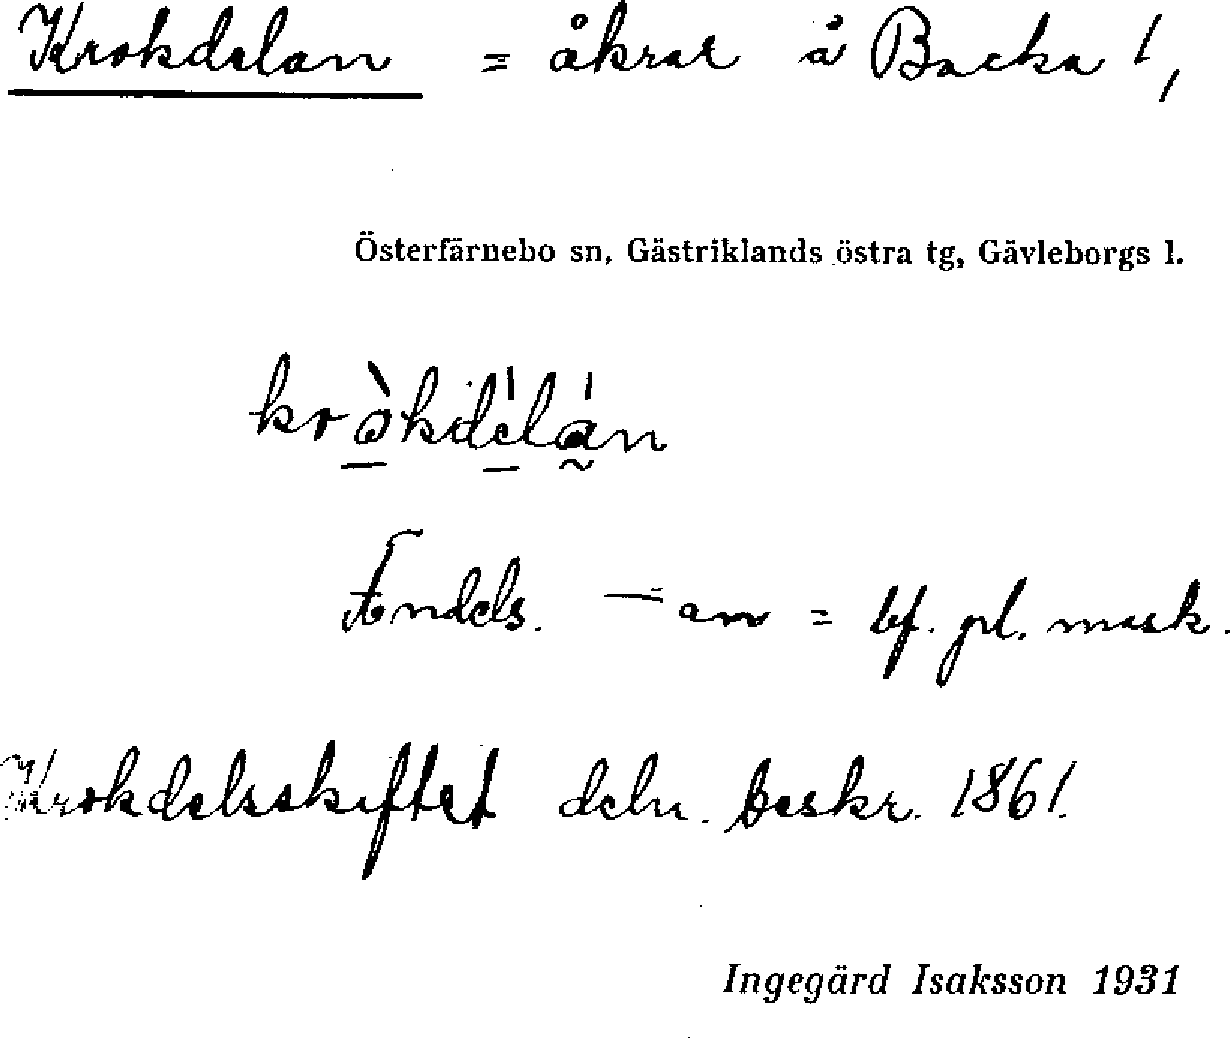 Krokdelan = åkrar å Backa 1,
Österfärnebo sn, Gästriklands östra tg, Gävleborgs l.
kròkdélán
Ändels. -an = bf. pl. mask.
Krokdelsskiftet deln. beskr. 1861.
Ingegärd Isaksson 1931